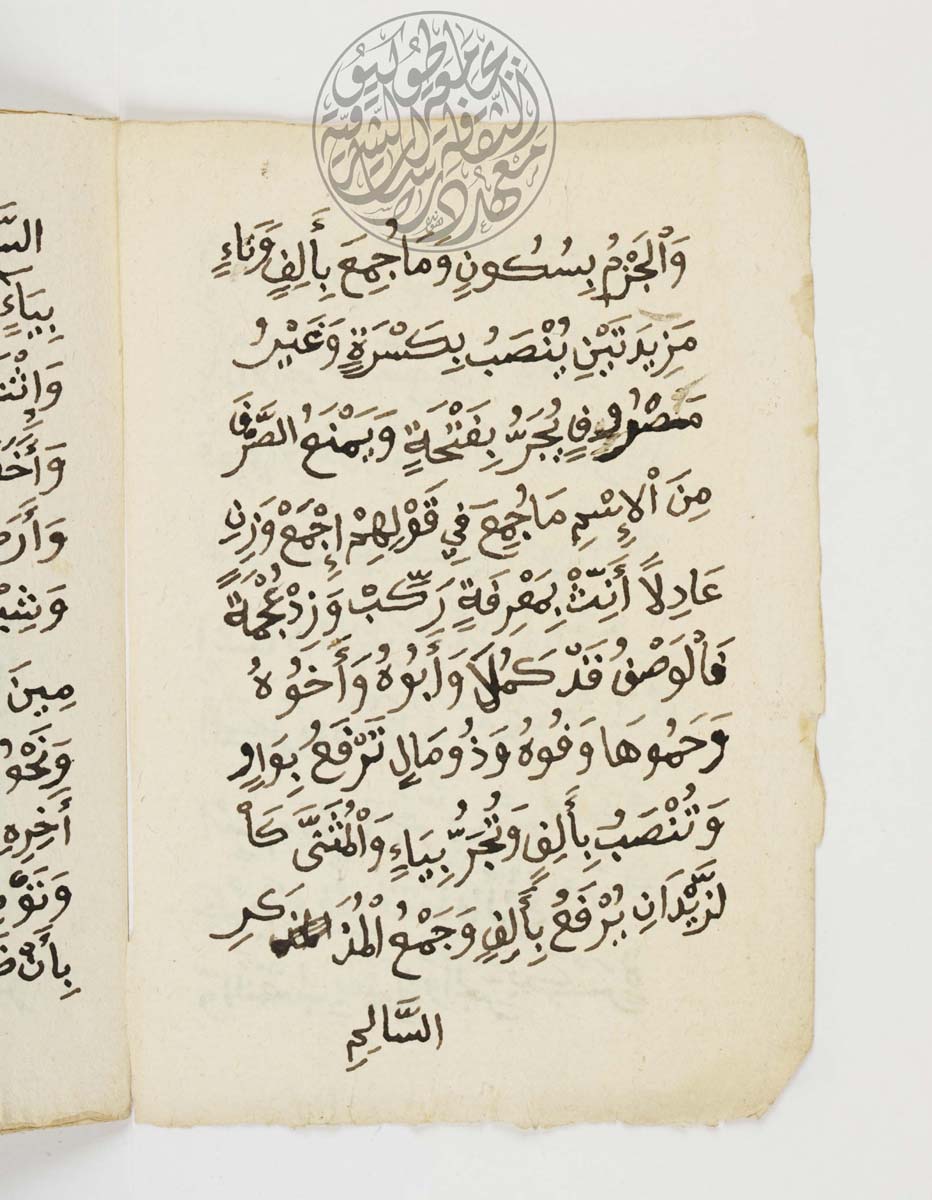 وَالْجَزْمُ بِسُكُونٍ وَمَا جُمِعَ بِأَلِفٍ وَتَاءٍ
مَزِيدَتَيْنِ يُنْصَبُ بِكَسْرَةٍ وَغَيْرُ
مَنصُوفٍ يُجَرُّ بِفَتْحَةٍ وَيَمْنَعُ الصَّرْفَ
مِنَ الْإِسْمِ مَا جُمِعَ فِي قَوْلِهِمْ إِجْمَعْ وَزِنِ
عَادِلًا أَنِّثْ بِمَعْرِفَةٍ رَكِّبْ وَزِدْ عُجْمَةً
فَالْوَصْفُ قَدْ كَمُلَا وَأَبُوهُ وَأَخَوُهُ
وَحَمُوهَا وَفُوهُ وَذُو مَالٍ تَرْفَعُ بِوَاوٍ
وَتُنْصَبُ بِأَلِفٍ وَتُجَرُّ بِيَاءٍ وَالْمُثَنَّى كَاْ
لزَّيْدَانِ يُرْفَعُ بِأَلِفٍ وَجَمْعُ الْمُذَكَرِ
السَّالِمِ
السَّ
بِيَاءٍ
وَأَخَ
وَشِبْ
مِينَ
وَنَحْوُ
أَخِرِهِ